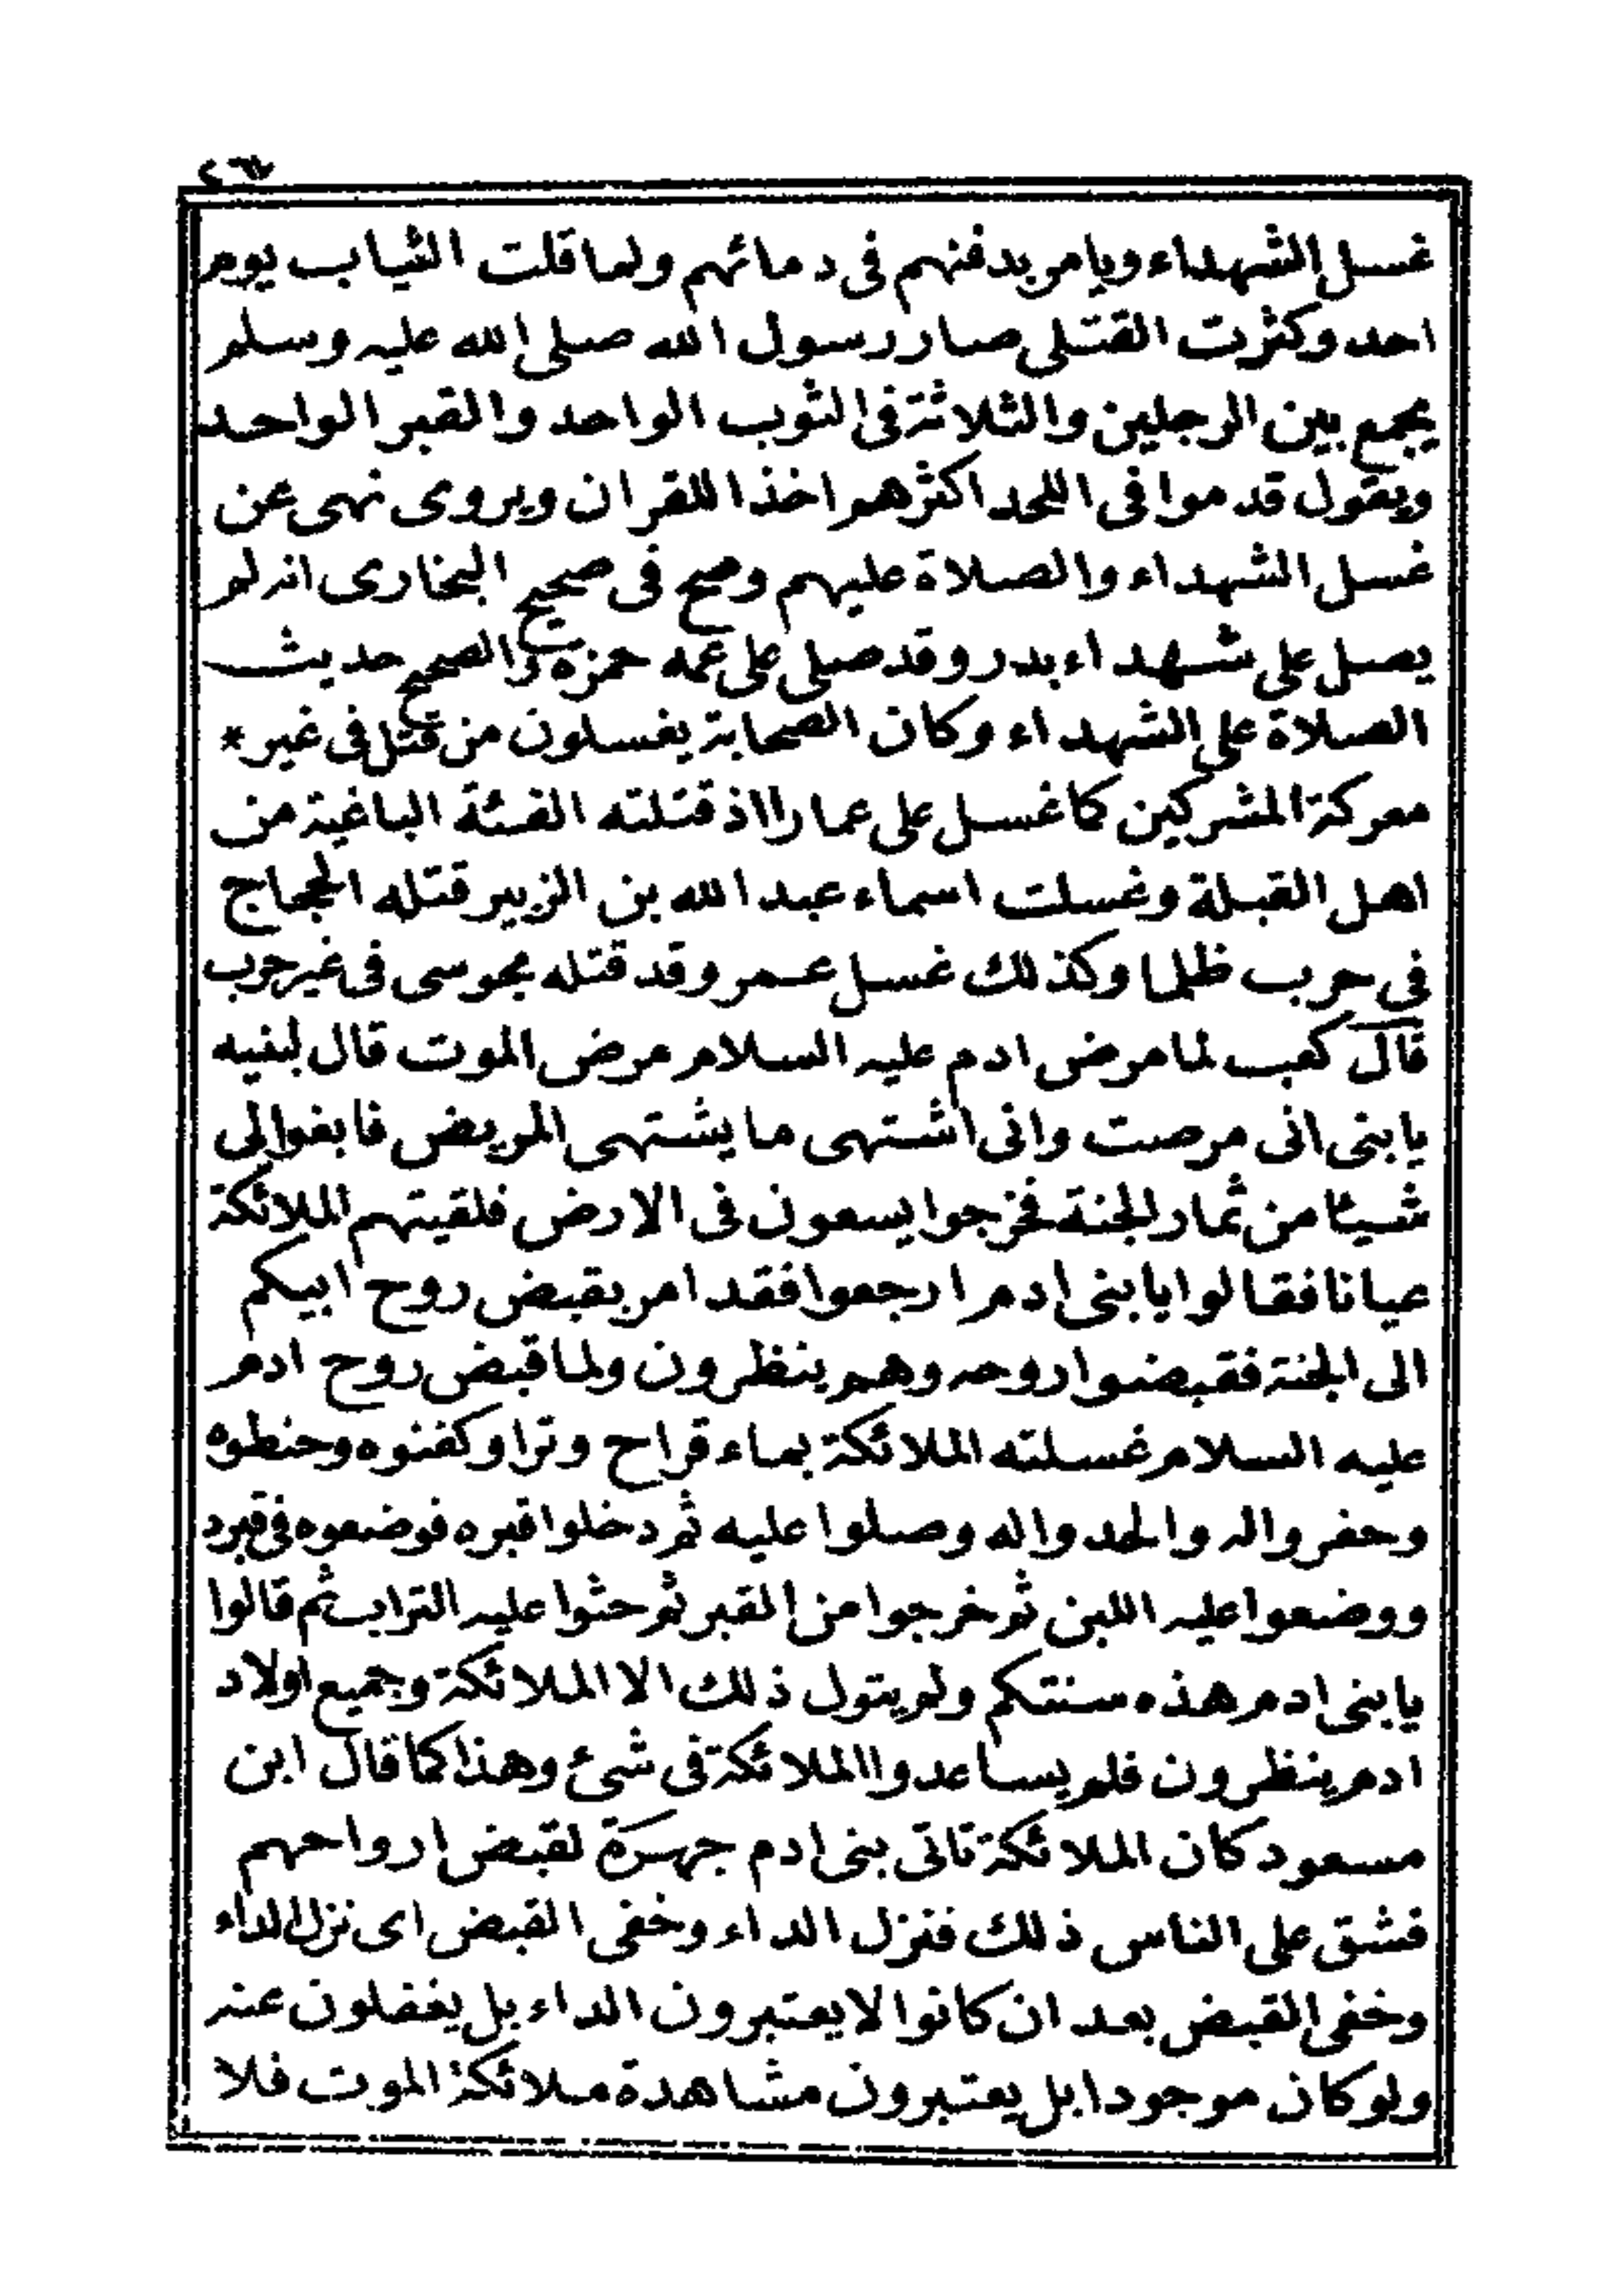 ٢٦٧
غسل الشهداء ويامر بدفنهم فى دمائهم ولما قلت الثياب يوم
احد وكثرت القتلى صار رسول الله صلى الله عليه وسلم
يجمع بين الرجلين والثلاثة فى الثوب الواحد والقبر الواحد
ويقول قدموا فى اللحد اكثرهم اخذا للقران ويروى نهى عن
غسل الشهداء والصلاة عليهم وصح فى صحيح البخارى انه لم
يصل على شهداء بدر وقد صلى على عمه حمزه والصحيح حديث
الصلاة على الشهداء وكان الصحابة يغسلون من قتل فى غير *
معركة المشركين كما غسل على عمارا اذ قتلته الفئة الباغية من
اهل القبلة وغسلت اسماء عبد الله بن الزبير قتله الحجاج
فى حرب ظلما وكذلك غسل عمر وقد قتله مجوسى فى غير حرب
قال كعب لما مرض ادم عليه السلام مرض الموت قال لبنيه
يا بنى انى مرصت وانى اشتهى ما يشتهى المريض فابغوا لى
شيئا من ثمار الجنة فخرجوا يسعون فى الارض فلقيتهم الملائكة
عيانا فقالوا يا بنى ادم ارجعوا فقد امر بقبض روح ابيكم
الى الجنة فقبضوا روحه وهم ينظرون ولما قبض روح ادم
عليه السلام غسلته الملائكة بماء قراح وترا وكفنوه وحنطوه
وحفروا له والحدوا له وصلوا عليه ثم دخلوا قبره فوضعوه فى قبره
ووضعوا عليه اللبن ثم خرجوا من القبر ثم حثوا عليه التراب ثم قالوا
يا بنى ادم هذه سنتكم ولم يتول ذلك الا الملائكة وجميع اولاد
ادم ينظرون فلم يساعدوا الملائكة فى شىء وهذا كما قال ابن
مسعود كان الملائكة تاتى بنى ادم جهرة لقبض ارواحهم
فشق على الناس ذلك فنزل الداء وخفى القبض اى نزل الداء
وخفى القبض بعد ان كانوا لا يعتبرون الداء بل يغفلون عنه
ولو كان موجودا بل يعتبرون مشاهدة ملائكة الموت فلا